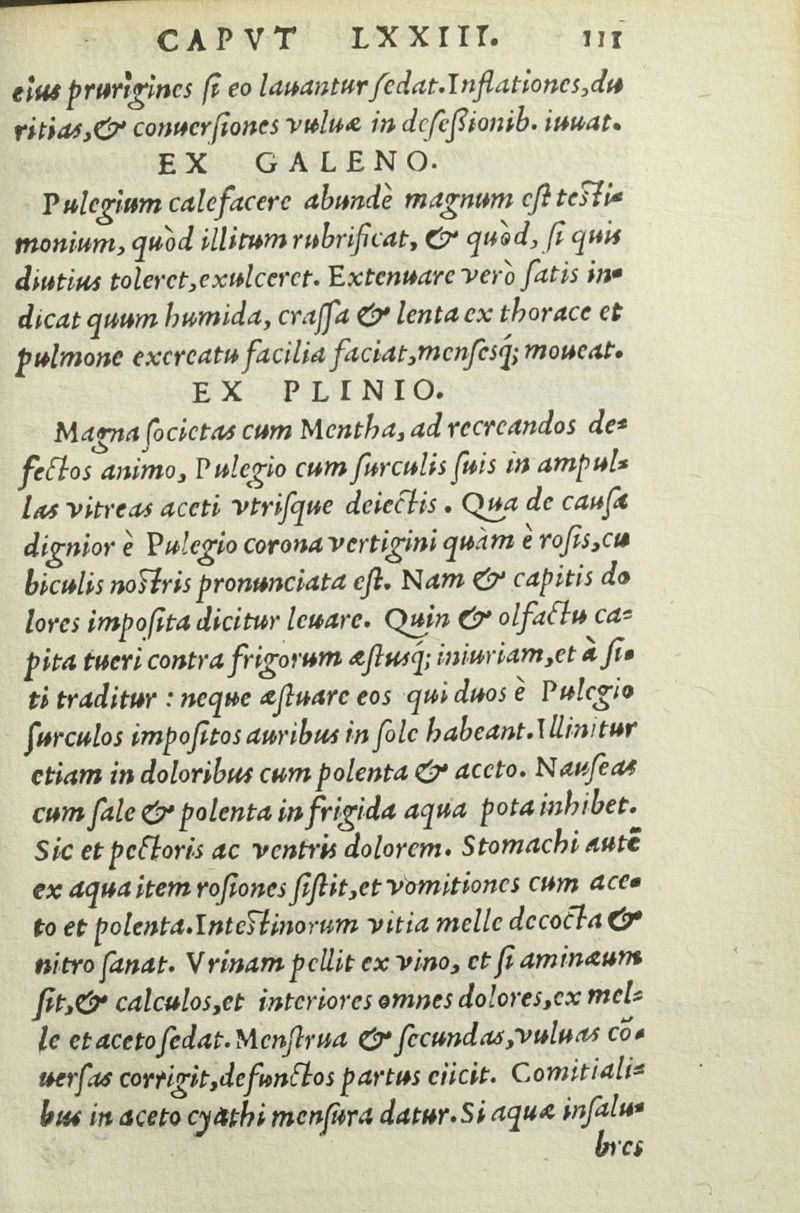 CAPVT LXXIII. 111
eius prurigines ſi eo lauantur ſedat. Inflationes, du
ritias, & conuerſiones vuluæ in deſeſsionib. iuuat.
EX GALENO.
Pulegium calefacere abundè magnum eſt teſti-
monium, quòd illitum rubrificat, & quòd, ſi quis
diutius toleret, exulceret. Extenuare verò ſatis in-
dicat quum humida, craſſa & lenta ex thorace et
pulmone excreatu facilia faciat, menſesq́; moueat.
EX PLINIO.
Magna ſocietas cum Mentha, ad recreandos de-
fectos animo, Pulegio cum ſurculis ſuis in ampul-
las vitreas aceti vtriſque deiectis. Qua de cauſa
dignior è Pulegio corona vertigini quàm è roſis, cu
biculis noſtris pronunciata eſt. Nam & capitis do
lores impoſita dicitur leuare. Quin & olfactu ca-
pita tueri contra frigorum æſtusq́; iniuriam, et à ſi-
ti traditur : neque æſtuare eos qui duos è Pulegio
ſurculos impoſitos auribus in ſole habeant. Illinitur
etiam in doloribus cum polenta & aceto. Nauſeas
cum ſale & polenta in frigida aqua pota inhibet.
Sic et pectoris ac ventris dolorem. Stomachi autē
ex aqua item roſiones ſiſtit, et vomitiones cum ace-
to et polenta. Inteſtinorum vitia melle decocta &
nitro ſanat. Vrinam pellit ex vino, et ſi aminæum
ſit, & calculos, et interiores omnes dolores, ex mel-
le et aceto ſedat. Menſtrua & ſecundas, vuluas cō-
uerſas corrigit, defunctos partus eiicit. Comitiali-
bus in aceto cyathi menſura datur. Si aquæ inſalu-
bres